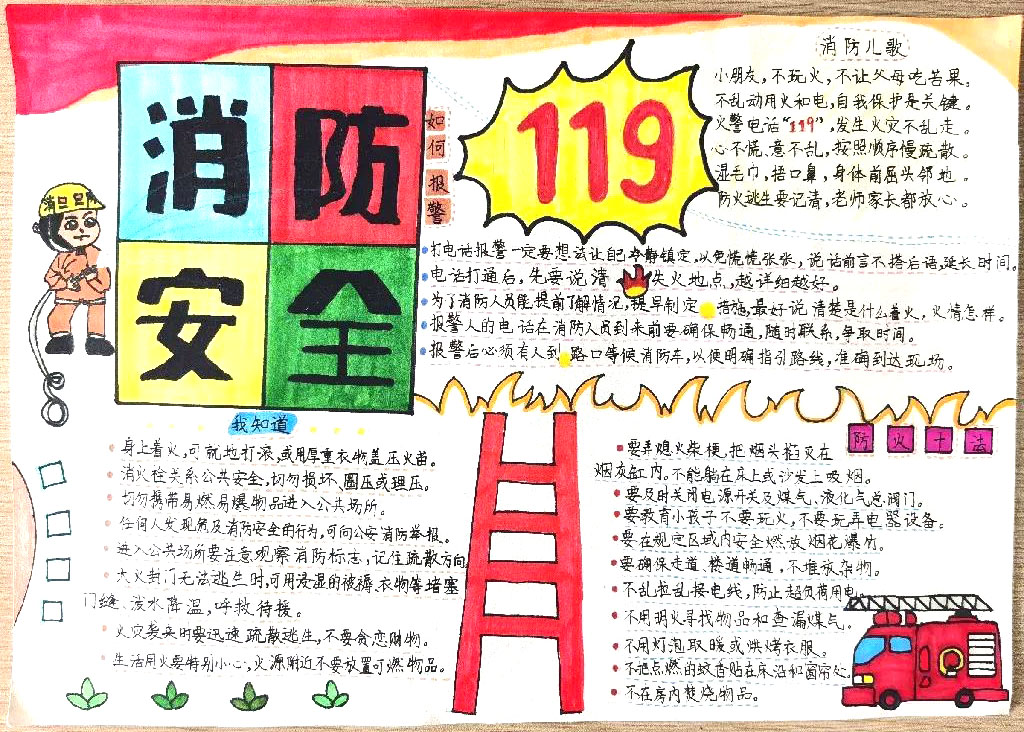 消防
安全
消防
如何报警
119
消防儿歌
小朋友,不玩火,不让父母吃苦果。
不乱动用火和电,自我保护是关键。
火警电话“119”,发生火灾不乱走。
心不慌、意不乱,按照顺序慢疏散。
湿毛巾,捂口鼻,身体前屈头邻地。
防火逃生要记清,老师家长都放心。
打电话报警一定要想法让自己冷静镇定,以免慌慌张张,说话前言不搭后语,延长时间。
电话打通后,先要说清 失火地点,越详细越好。
为了消防人员能提前了解情况,提早制定 措施,最好说清楚是什么着火,火情怎样。
报警人的电话在消防人员到来前要确保畅通,随时联系,争取时间。
报警后必须有人到 路口等候消防车,以便明确指引路线,准确到达现场。
我知道
身上着火,可就地打滚,或用厚重衣物盖压火苗。
消火栓关系公共安全,切勿损坏、圈压或埋压。
切勿携带易燃易爆物品进入公共场所。
任何人发现危及消防安全的行为,可向公安消防举报。
进入公共场所要注意观察消防标志,记住疏散方向
大火封门无法逃生时,可用浸湿的被褥、衣物等堵塞
门缝、泼水降温,呼救待援。
火灾袭来时要迅速疏散逃生,不要贪恋财物。
生活用火要特别小心,火源附近不要放置可燃物品。
防火十法
要弄熄火柴梗,把烟头掐灭在
烟灰缸内。不能躺在床上或沙发上吸烟。
要及时关闭电源开关及煤气、液化气总阀门。
要教育小孩子不要玩火,不要玩弄电器设备。
要在规定区域内安全燃放烟花爆竹。
要确保走道、楼道畅通,不堆放杂物。
不乱拉乱接电线,防止超负荷用电。
不用明火寻找物品和查漏煤气。
不用灯泡取暖或烘烤衣服。
不把点燃的蚊香贴在床沿和窗帘处。
不在房内焚烧物品。